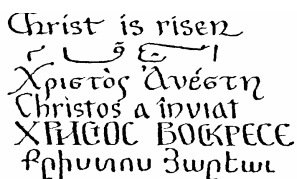 Christ is risen
Χριστὸς Ἀνέστη
Christos a înviat
ХРИСОС ВОСКРЕСЕ
Քրիստոս Յարեաւ